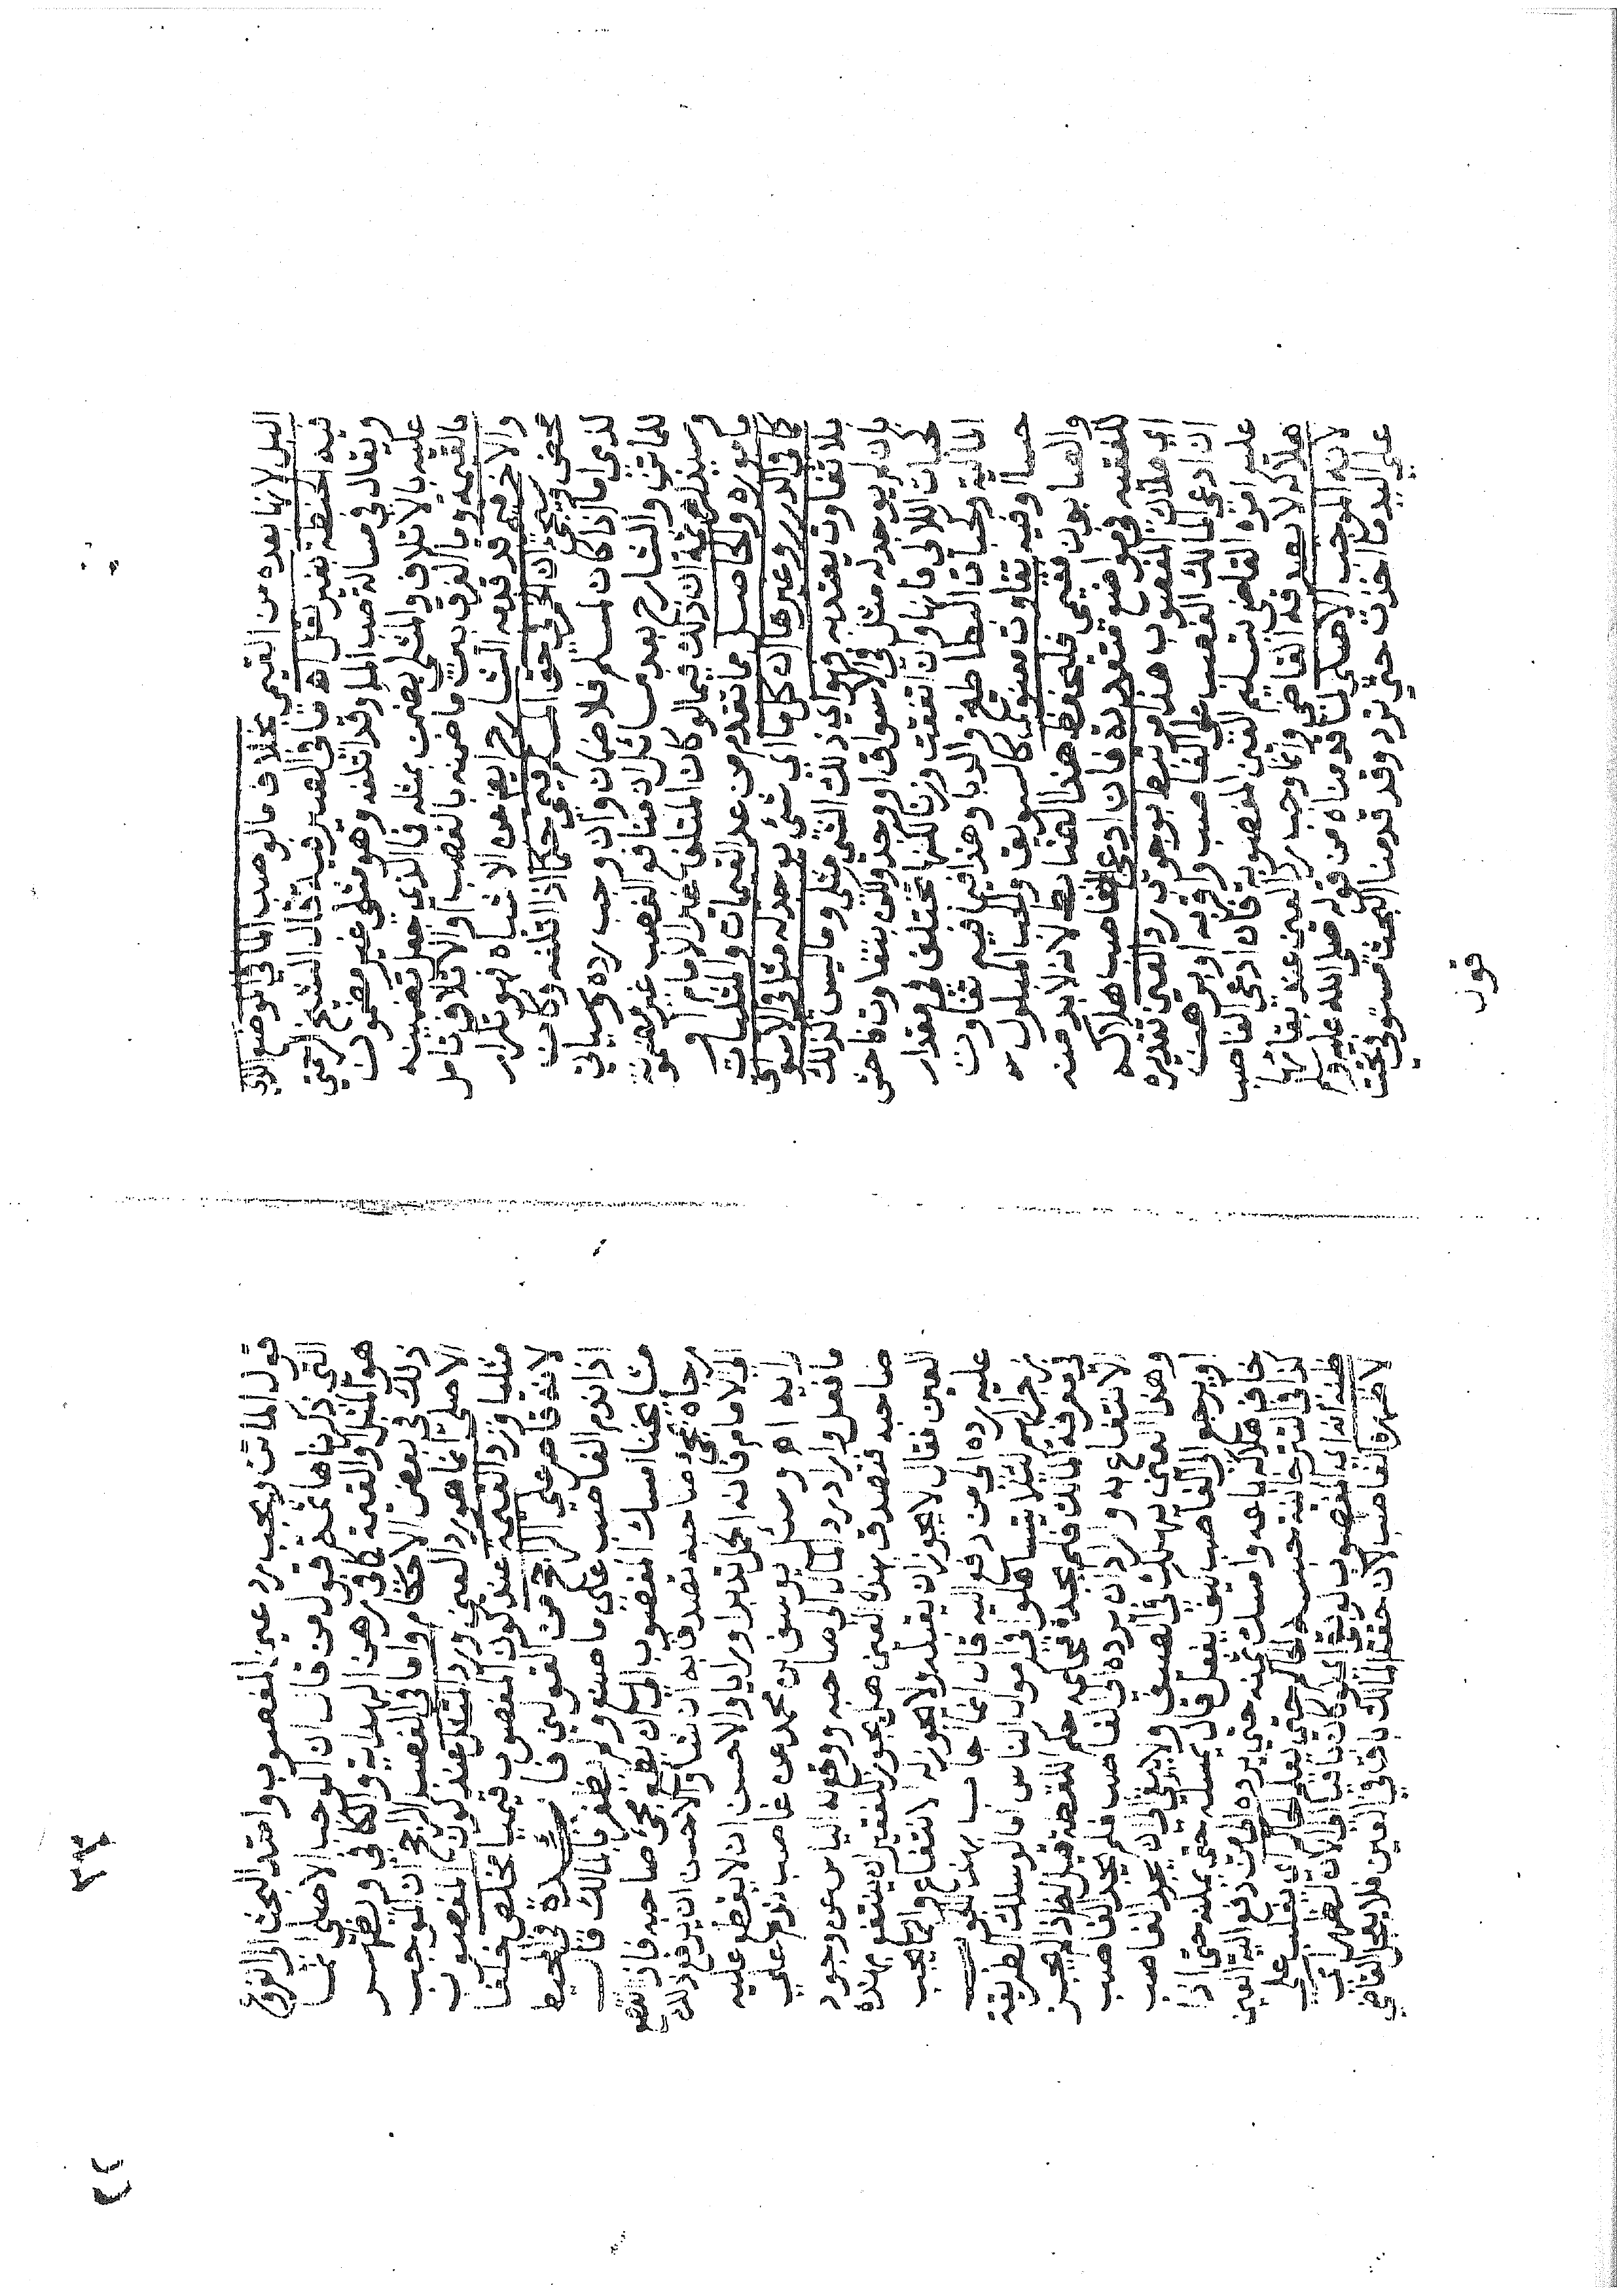 البل لانها بعده من القيمي بخلاف مالو صب الما في الموضع الذي
فيه الحنطة بغير نقل اه قاق الغير فيه قال الشيخ الرحمتي
ويقال في مسالة صب الما وقد اتلفه وهو مثلي غير مضمون
عليه بالاتلاف والمثلي يضمن بمثله فما الذي جعل تضمينه
بالقيمة وما الفرق بين ما ضمنه بالغصب او الاتلاف تامل
والاخير قد قدمه الشارح ايضا عن الاشباه فهو تكرار
محض ويجي ان الخمر في حق المسلم قيمي حكما اذا اتلفه وكان
لذي اما اذا كان لمسلم فلا ضمان وان وجب رده وسياتي
للماتن والشارح بعد مسائل ان منافع الغصب غير مضمونة
وسيذكر ثمة ان ذلك فيما لو كان المتلف غير الامام او
مامـوره والحاصل مما تقدم من عد القيميات والمثليات
كما في الدرر وغيرها ان كل ما اي شي يوجد له مثل في الاسواق
بلا تفاوت يعتد به فهو اي ذلك الشي مثلي وما ليس كذلك
بان لم يوجد له مثل في الاسواق او وجد ولكن بتفاوت فاحش
كحبات اللالي فانها وان اتفقت وزنا لكنها تختلف في مقدار
المالية وكحبات البطاطيخ والدبا وهذا فيما فيه تفاوت
حسا او فيه تفاوت معنوي كالسويق والحب المبلول
والصابون فقيمي فليحفظ هذا الضابط لانه لابد منه
للفقيه في مواضع متعددة فان ادعى الغاصب هلاكه
اي هلاك المغصوب هذا مرتبط بوجوب رد العين تقديره
ان ادعى المالك الغصب على الغاصب واقر به او برهن
عليه امره القاضي بتسليم العين المغصوبة فان ادعى الغاصب
هلاكه لا يصدقه القاضي وانما وجب رد العين عند بقائها
لانه الموجب الاصلي لما قدمناه من قوله صلى الله عليه وسلم
على اليد ما اخذت حتى ترد وقد قدمنا البحث مستوفى تحت
قول
قول الماتن ويجب رد عين المغصوب وامتد البحث الى الفروع
التي ذكرناها ثمة قبول من قال ان الموجب الاصلي انما
هو المثل او القيمة كما في رهن الهداية والكافي ويظهر
ذلك في بعض الاحكام واما في الغصب الراجح ان الموجب
الاصلي انما هو رد العين ورد المثل عند كون المغصوب
مثليا ورد القيمة عند كون المغصوب قيميا مخلص خلفا
لانه قاصر على الراجح من القولين فان شدة في المحيط
اذا ندم الغاصب على ما صنع ولم يظفر بالمالك قال
مشايخنا امسك المغصوب الى ان يطمع مجي صاحبه فاذا انقطع
رجاه مجي صاحبه تصدق به ان شا والاحسن ان يرفع ذلك
الى الامام فان الحمل تدبيرا ورايا والاحسن ان لا يقطع عليه
رايه اه وسئل يوسف بن محمد عن غاصب ندم على
ما فعل واراد رد المال الى صاحبه ووقع له الياس عن وجود
صاحبه فتصدق بهذه العين هل يجوز للفقير ان ينتفع بهذه
العين فقال لا يجوز ان يقبله ولا يجوز له الانتفاع وانما يجب
عليه رده الى من دفع اليه قال انما اجاب بهذا الجواب
زجرا لهم لئلا يتساهلوا في اموال الناس اما لو سلك الطريقة
في معرفة المالك فلم يجده فحكمه حكم اللقطة قيل له اذا لم يجز
الانتفاع به واراد ان يرده الى الغاصب فلم يجد الغاصب
وهذا العين يهلك في الصيف ولا يبقى الى ان يجد الغاصب
او يرجو الى الغاصب كيف يفعل قال يمسكه حتى يمكنه حتى اذا
خاف هلاكه باعه وامسك ثمنه حتى يرده الى من دفع اليه العين
كذا في التترخانية حبسه الحاكم حتى يعلم الحاكم اي يغلب على
ظنه انه اي المغصوب لو بقي اي لو كان باقيا اي الانه لظهر اي
لاظهره الغاصب لان حق المالك باق في العين فلا يعجل القاضي
٣٣